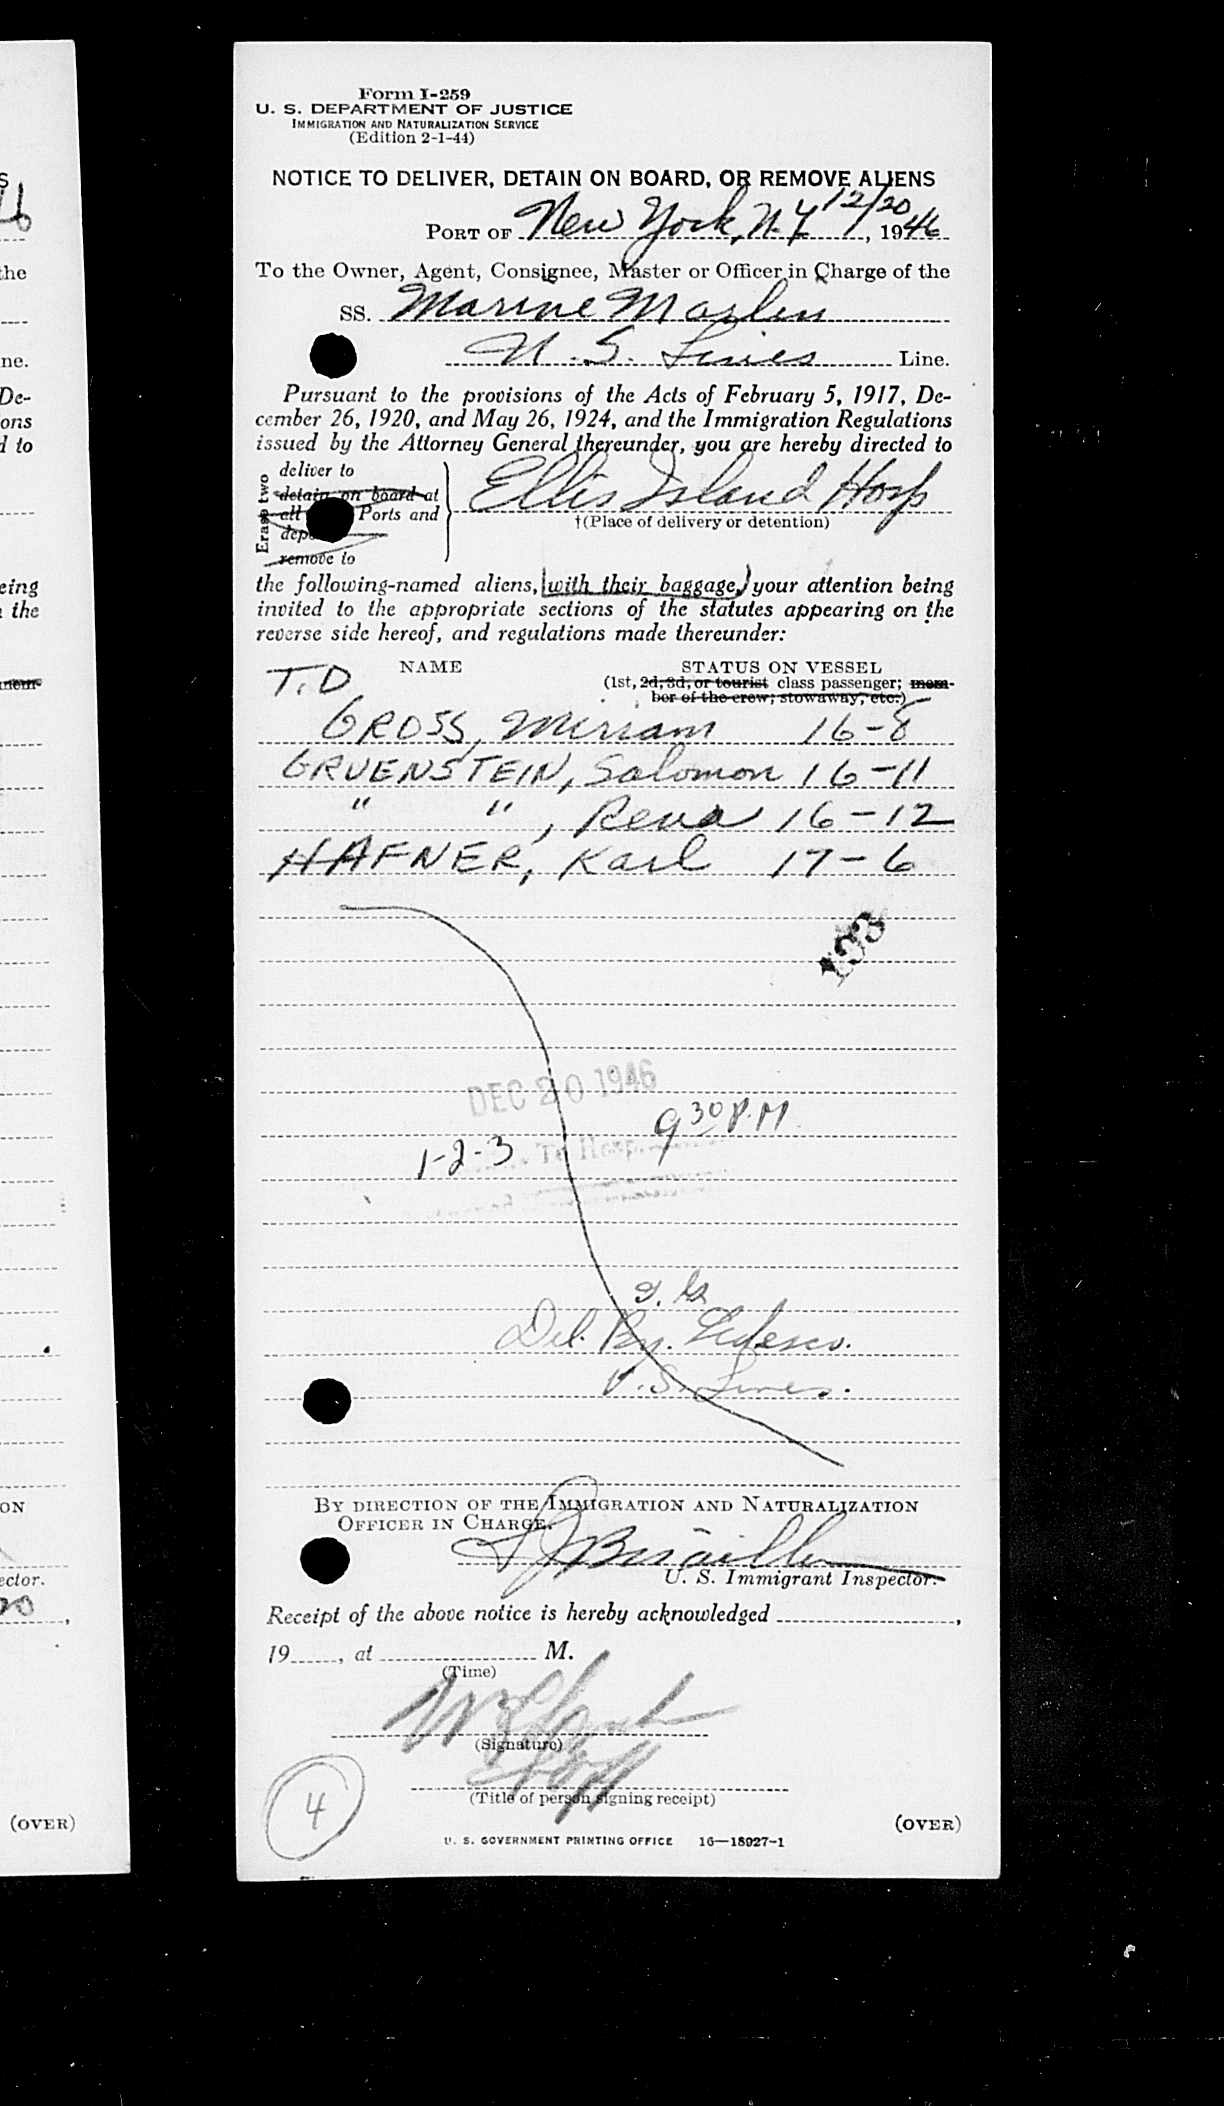 Form I-259
U. S. DEPARTMENT OF JUSTICE
IMMIGRATION AND NATURALIZATION SERVICE
(Edition 2-1-44)
NOTICE TO DELIVER, DETAIN ON BOARD, OR REMOVE ALIENS
PORT OF New York, N.Y. 12/20, 1946
To the Owner, Agent, Consignee, Master or Officer in Charge of the
SS. Marine Marlin
U.S. Lines Line.
Pursuant to the provisions of the Acts of February 5, 1917, De-
cember 26, 1920, and May 26, 1924, and the Immigration Regulations
issued by the Attorney General thereunder, you are hereby directed to
Erase two
deliver to
detain on board at
all Ports and
remove to
Ellis Island Hosp
†(Place of delivery or detention)
the following-named aliens, with their baggage, your attention being
invited to the appropriate sections of the statutes appearing on the
reverse side hereof, and regulations made thereunder:
T.D.
NAME
STATUS ON VESSEL
(1st, 2d, 3d, or tourist class passenger; mem-
ber of the crew; stowaway, etc.)
GROSS, Mirriam 16-8
GRUENSTEIN, Salomon 16-11
" ", Rena 16-12
HAFNER, Karl 17-6
DEC 20 1946
9 30 P.M.
1-2-3
To Hosp.
Del. By. Tedesco.
U.S. Lines.
BY DIRECTION OF THE IMMIGRATION AND NATURALIZATION
OFFICER IN CHARGE.
U. S. Immigrant Inspector.
Receipt of the above notice is hereby acknowledged ,
19 , at M.
(Time)
(Signature)
(Title of person signing receipt)
4
(OVER)
U. S. GOVERNMENT PRINTING OFFICE 16—18027-1
the
ne.
De-
ons
d to
eing
the
mem-
ON
ector.
(OVER)